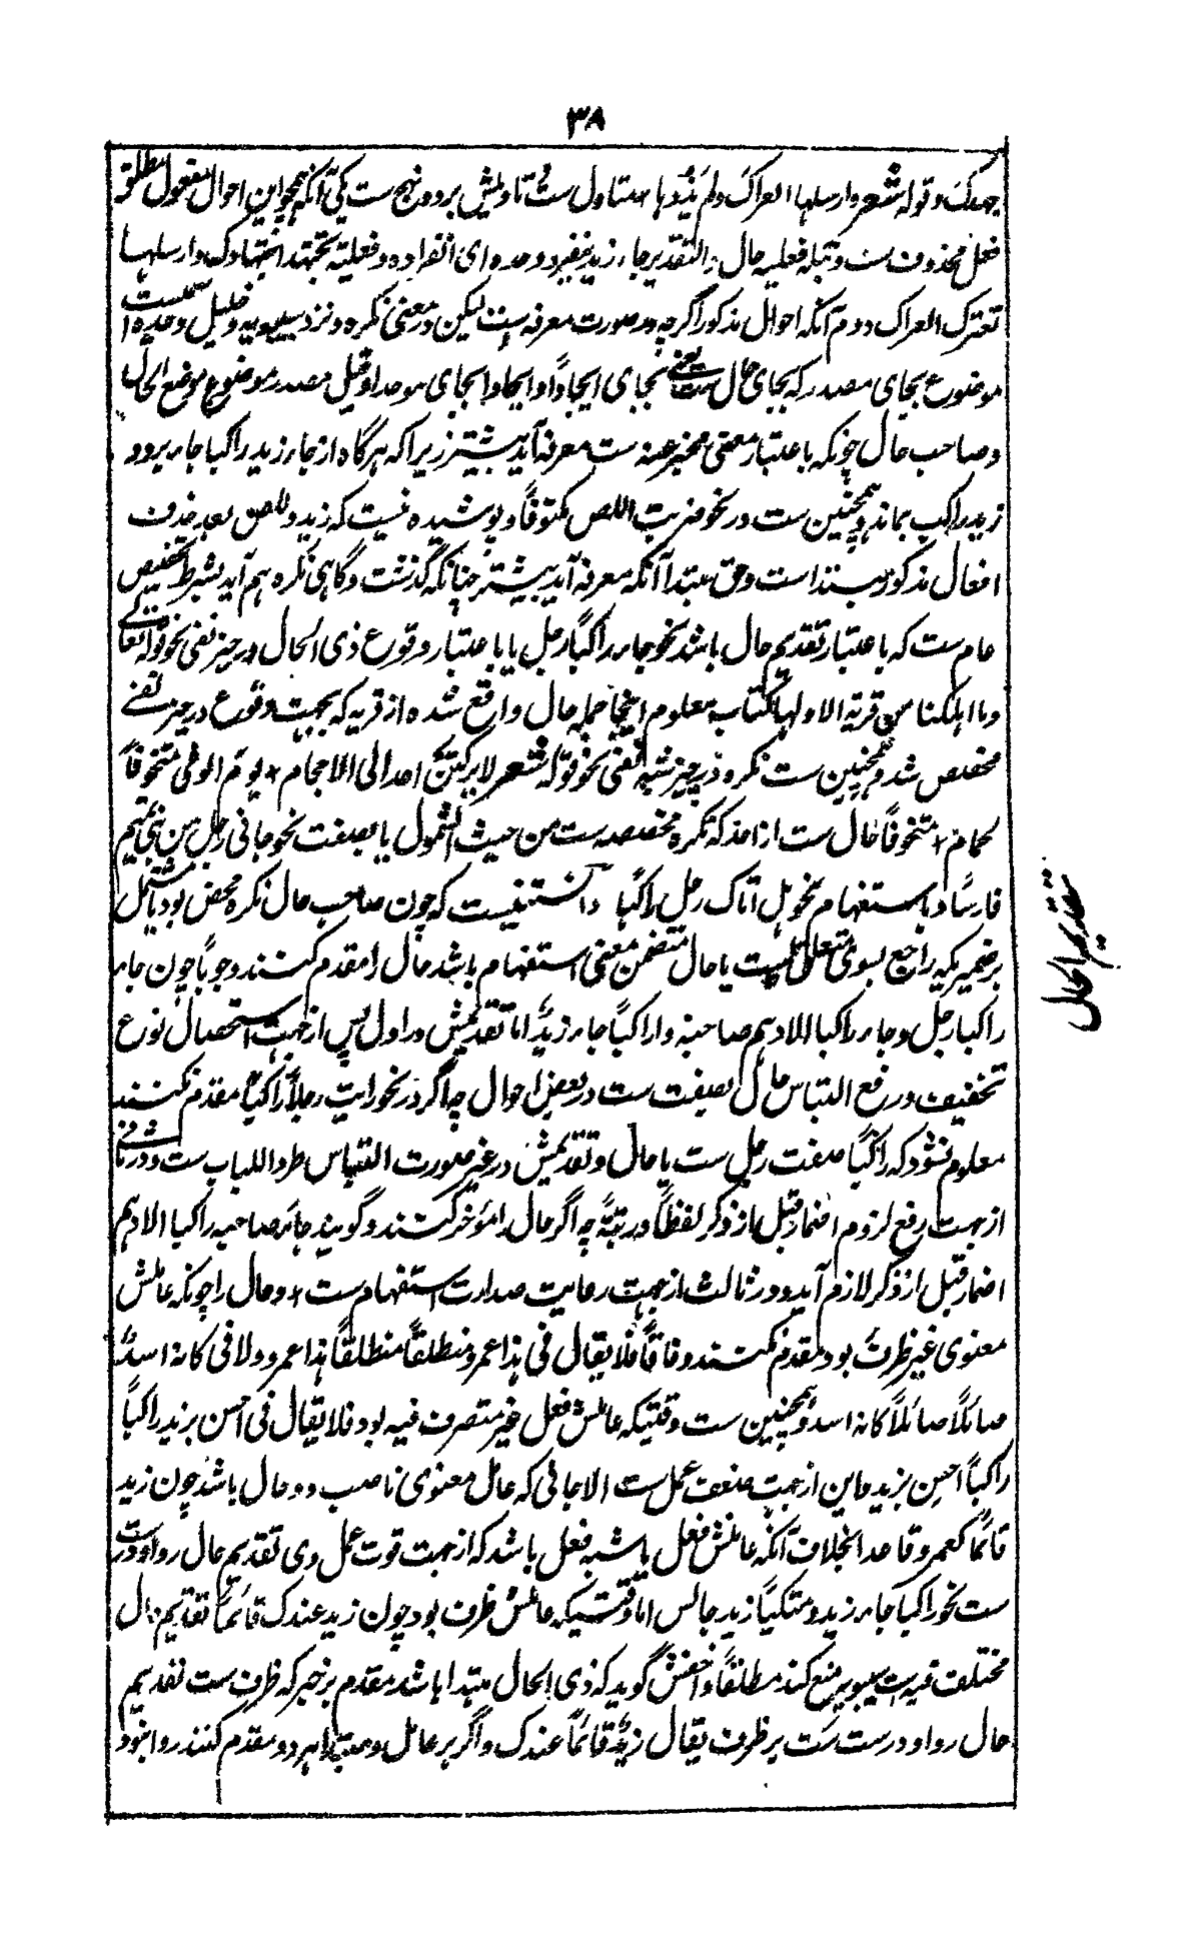 ۳۸
جهدک و قوله شعر وارسلها العراک ولم یذدها * متاول ست و تاویلش بر دو نهج ست یکی آنکه همچو این احوال مفعول مطلق
فعل محذوف ست و جمله فعلیه حال و التقدیر جاء زید ینفرد وحده ای انفراده و فعلته تجتهد اجتهادک و ارسلها
تعترک العراک دوم آنکه احوال مذکور اگرچه در صورت معرفه است لیکن در معنی نکره و نزد سیبویه و خلیل وحده اسمست
موضوع بجای مصدر که بجای حال ست یعنی بجای ایحاداً و ایحاداً بجای موحداً و قیل مصدر موضوع موضع الحال
و صاحب حال چونکه باعتبار معنی مخبر عنه ست معرفه آید بیشتر زیرا که هرگاه از جاء زید راکبا جاء برود
زید راکب بماند و همچنین ست در نحو ضربت اللص مکتوفاً و پوشیده نیست که زید و للص بعد حذف
افعال مذکور مبتدا است و حق مبتدا آنکه معرفه آید بیشتر چنانکه گذشت و گاهی نکره هم آید بشرط تخصیص
عام ست که باعتبار تقدیم حال باشد نحو جاء راکباً رجل یا باعتبار وقوع ذی الحال در حیز نفی نحو قوله تعالی
وما اهلکنا من قریة الا ولها کتاب معلوم اینجا جمله حال واقع شده از قریه که بجهت وقوع در حیز نفی
مخصص شد و همچنین ست نکره در حیز شبه نفی نحو قوله شعر لا یرکنن احد الی الاحجام * یوم الوغی متخوفاً
لحمام * متخوفاً حال ست از احد که نکره مخصصه ست من حیث الشمول یا بصفت نحو جانی رجل من بنی تمیم
فارساً و باستفهام نحو هل اتاک رجل راکباً دانستنیست که چون صاحب حال نکره محض بود یا مشتمل
بر ضمیریکه راجع بسوی متعلق حال ست یا حال متضمن معنی استفهام باشد حال را مقدم کنند وجوباً چون جاء
راکبا رجل و جاء راکبا الادهم صاحبه و اراکباً جاء زیدٌ اما تقدیمش در اول پس از جهت استحصال نوع
تخفیف و رفع التباس حال بصفت ست در بعض احوال چه اگر در نحو رایت رجلاً راکباً مقدم نکنند
معلوم نشود که راکباً صفت رجل ست یا حال و تقدیمش در غیر صورت التباس طرد اللباب ست و در ثانی
از جهت رفع لزوم اضمار قبل از ذکر لفظاً و رتبةً چه اگر حال را مؤخر کنند و گویند جاء صاحبه راکبا الادهم
اضمار قبل از ذکر لازم آید و در ثالث از جهت رعایت صدارت استفهام ست * و حال را چونکه عاملش
معنوی غیر ظرف بود مقدم نکنند وفاقاً فلا یقال فی هذا عمرو منطلقاً منطلقاً هذا عمرو و لا فی کانه اسدٌ
صائلاً صائلاً کانه اسدٌ و همچنین ست وقتیکه عاملش فعل غیر متصرف فیه بود فلا یقال فی احسن بزید راکباً
راکباً احسن بزید و این از جهت ضعف عمل ست الا جائی که عامل معنوی ناصب دو حال باشد چون زید
قائماً کعمرو قاعد انخلاف آنکه عاملش فعل یا شبه فعل باشد که از جهت قوت عمل وی تقدیم حال روا و درست
ست نحو راکبا جاء زید و متکیاً زید جالس اما وقتیکه عاملش ظرف بود چون زید عندک قائماً تقدیم حال
مختلف فیه ست سیبویه منع کند مطلقاً و اخفش گوید که ذی الحال مبتدا باشد مقدم بر خبر که ظرف ست تقدیم
حال روا و درست ست بر ظرف یقال زیدٌ قائماً عندک و اگر بر عامل و مبتدا هر دو مقدم کنند روا نبود
تقدیم الحال